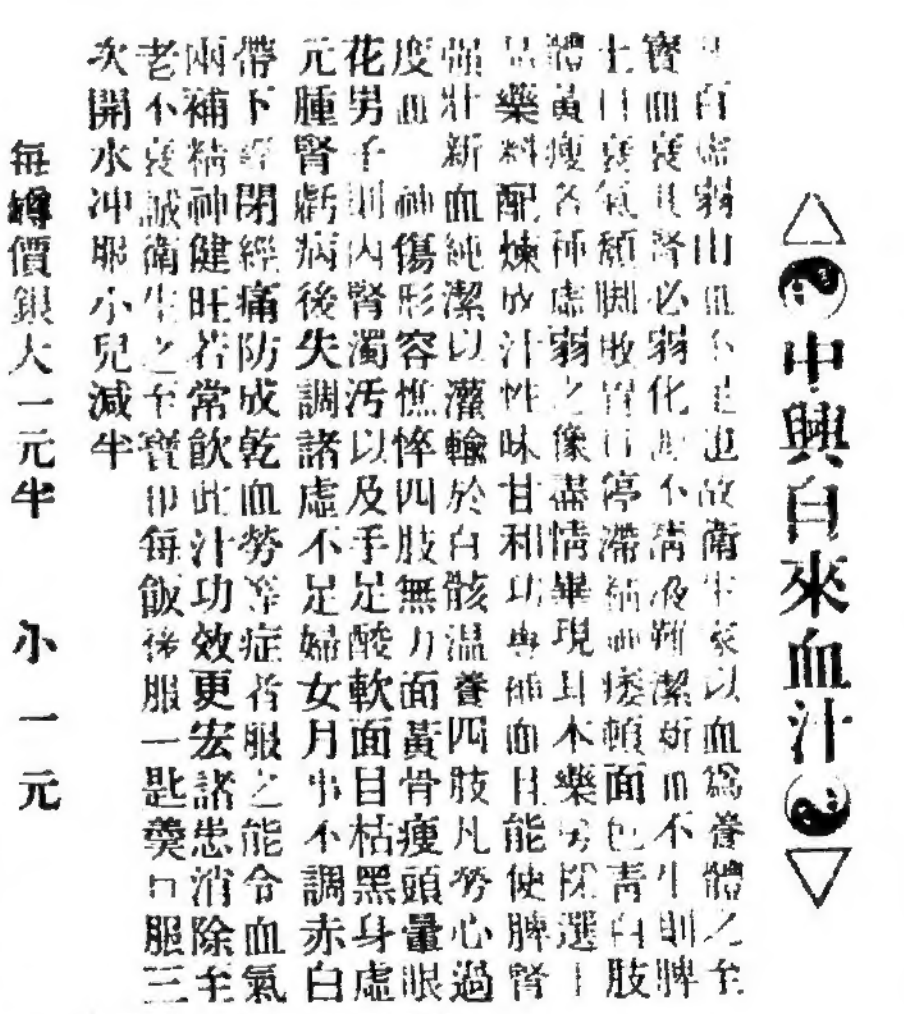 中興自來血汁
百虛弱由血不足也故衛生家以血爲養體之至
寶血衰其腎必弱化不清液難潔新血不生則脾
土日衰氣頹脚敗胃口停滯精神痿頓面色青白肢
體黃瘦各種虛弱之像盡情畢現耳本藥房採選上
品藥料配煉成汁性味甘和功專補血且能使脾腎
强壯新血純潔以灌輸於白骸温養四肢凡勞心過
度血 神傷形容憔悴四肢無力面黃骨瘦頭暈眼
花男子則內腎濁污以及手足酸軟面目枯黑身虛
元腫腎虧病後失調諸虛不足婦女月事不調赤白
帶下經閉經痛防成乾血勞等症者服之能令血氣
兩補精神健旺若常飲此汁功效更宏諸患消除至
老不衰誠衛生之至寶每飯後服一匙羹日服三
次開水冲服小兒減半
每罇價銀大一元半 小一元